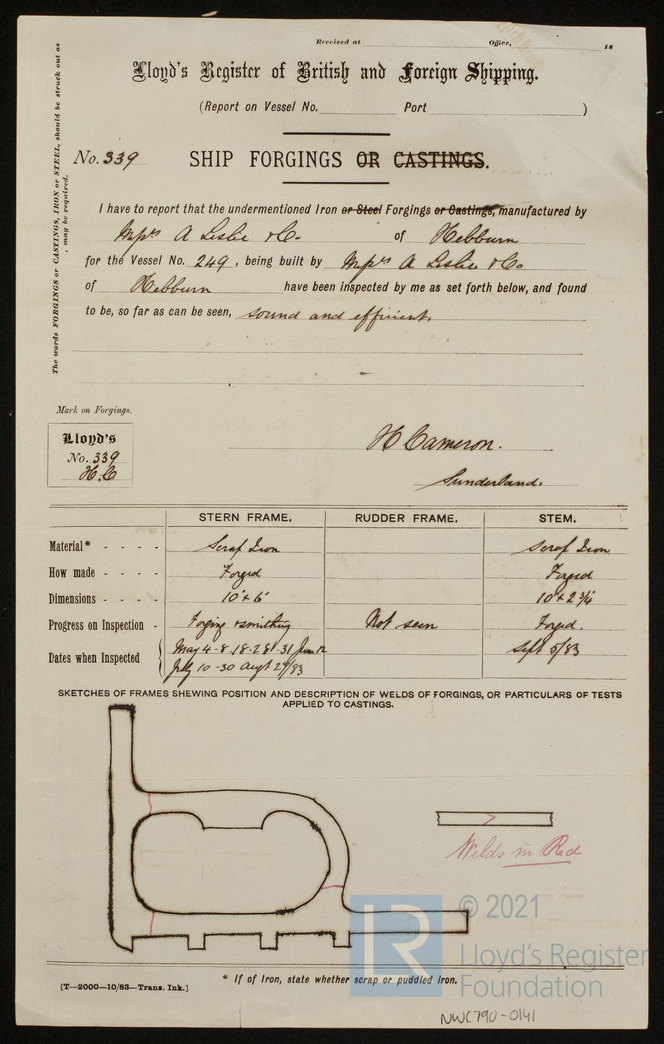 Received at Office, 18
Lloyd's Register of British and Foreign Shipping.
(Report on Vessel No. Port )
No. 339 SHIP FORGINGS OR CASTINGS.
The words FORGINGS or CASTINGS, IRON or STEEL, should be struck out as
may be required.
I have to report that the undermentioned Iron or Steel Forgings or Castings, manufactured by
A Leslie & Co. of Hebburn
for the Vessel No. 249, being built by A Leslie & Co
of Hebburn have been inspected by me as set forth below, and found
to be, so far as can be seen, sound and efficient.
Mark on Forgings.
Lloyd's
No. 339
H.C
H Cameron.
Sunderland.
STERN FRAME. RUDDER FRAME. STEM.
Material* - - - - Scrap Iron Scrap Iron
How made - - - - Forged Forged
Dimensions - - - - 10" x 6" 10" x 2 3/4
Progress on Inspection - Forging & smithing Not seen Forged.
Dates when Inspected May 4-8-18-28-31 June 12 Sept 5/83
July 10-30 Augt 29/83
SKETCHES OF FRAMES SHEWING POSITION AND DESCRIPTION OF WELDS OF FORGINGS, OR PARTICULARS OF TESTS
APPLIED TO CASTINGS.
Welds in Red
LR
© 2021
Lloyd's Register
Foundation
* If of Iron, state whether scrap or puddled Iron.
[T—2000—10/83—Trans. Ink.]
NWC790-0141